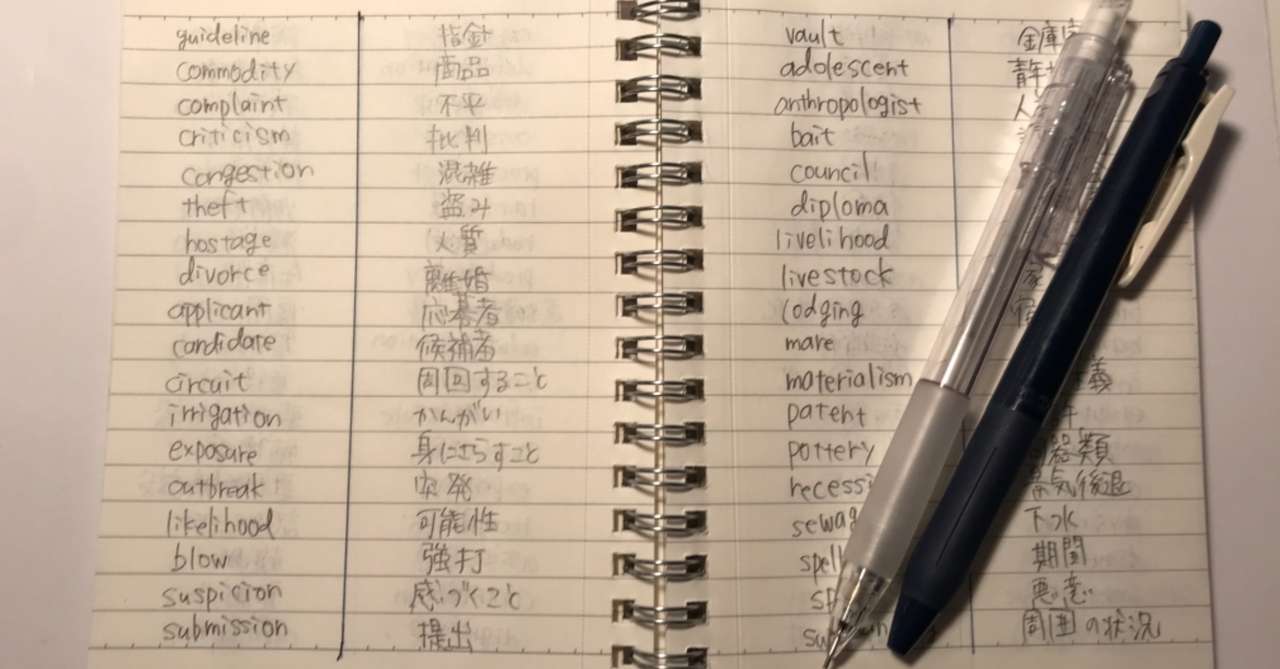 guideline 指針
commodity 商品
complaint 不平
criticism 批判
congestion 混雑
theft 盗み
hostage 人質
divorce 離婚
applicant 応募者
candidate 候補者
circuit 周回すること
irrigation かんがい
exposure 身にさらすこと
outbreak 突発
likelihood 可能性
blow 強打
suspicion 感づくこと
submission 提出
vault 金庫
adolescent
anthropologist
bait
council
diploma
livelihood
livestock
lodging
mare
materialism
patent
pottery
下水
期間
悪意
周囲の状況